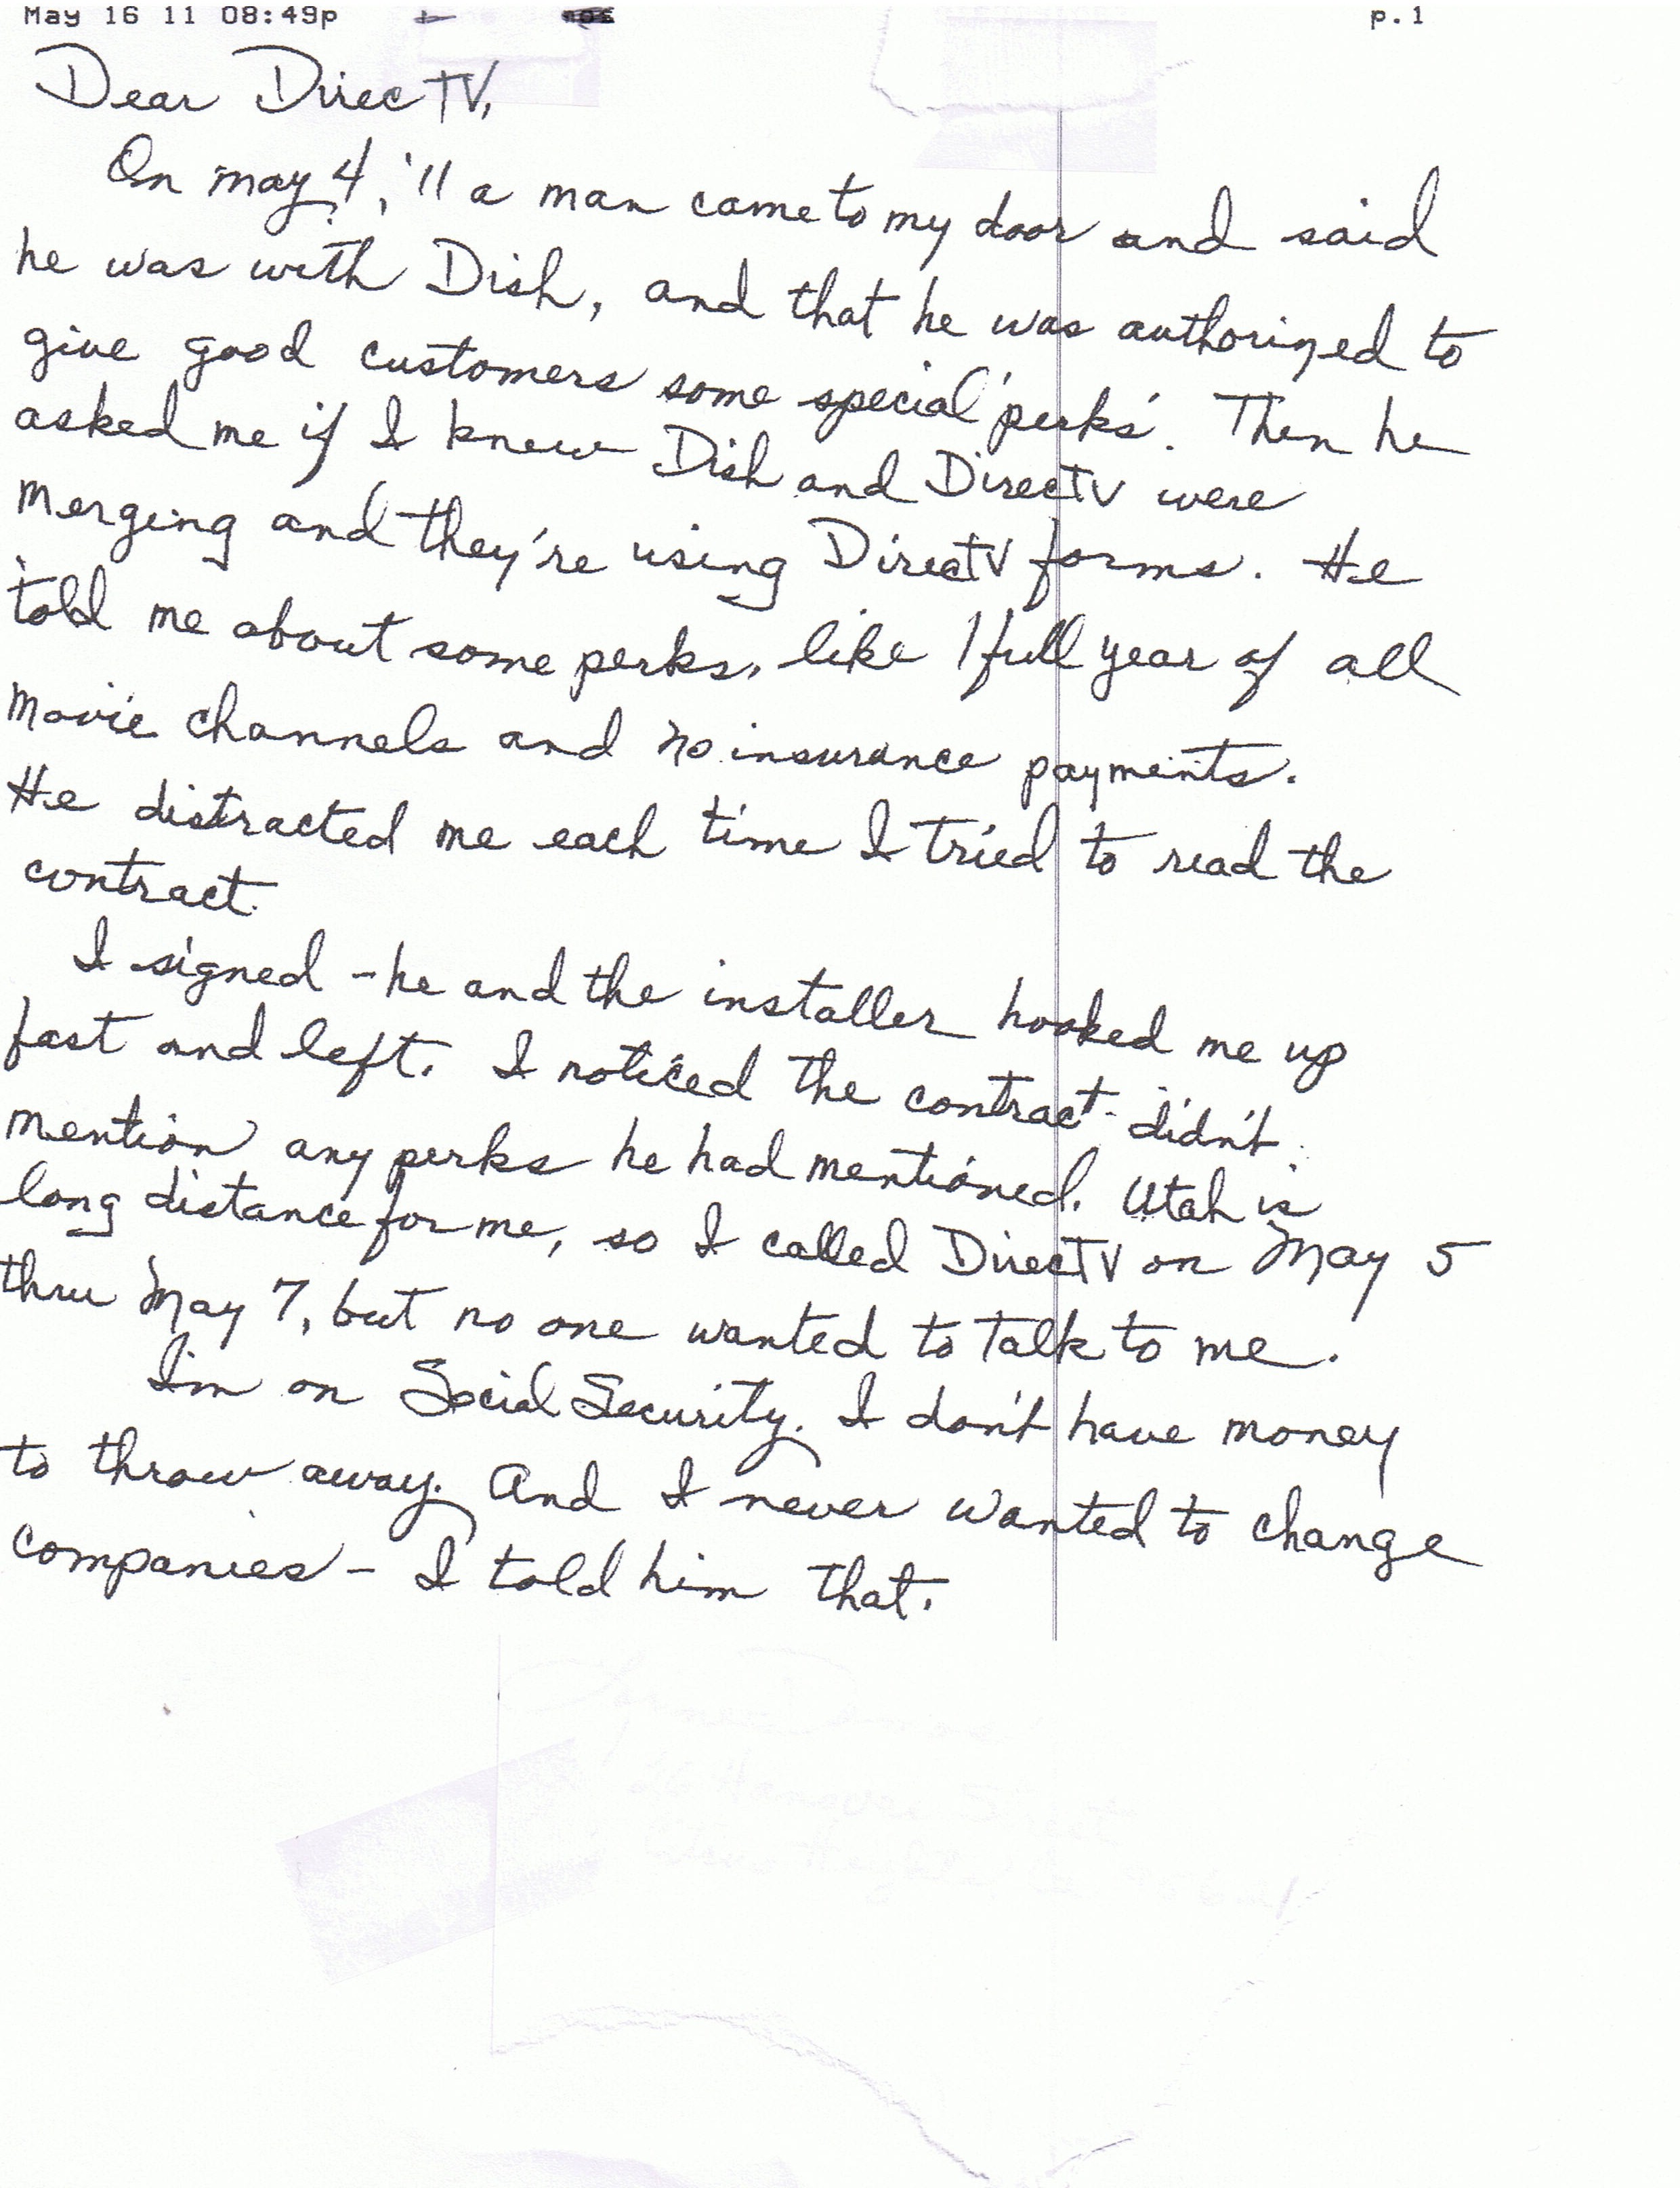 May 16 11 08:49p p.1
Dear DirecTV,
On may 4, '11 a man came to my door and said
he was with Dish, and that he was authorized to
give good customers some special 'perks'. Then he
asked me if I knew Dish and DirecTV were
merging and they're using DirecTV forms. He
told me about some perks, like 1 full year of all
movie channels and no insurance payments.
He distracted me each time I tried to read the
contract.
I signed - he and the installer hooked me up
fast and left. I noticed the contract didn't
mention any perks he had mentioned. Utah is
long distance for me, so I called DirecTV on May 5
thru May 7, but no one wanted to talk to me.
I'm on Social Security. I don't have money
to throw away. And I never wanted to change
companies - I told him that.